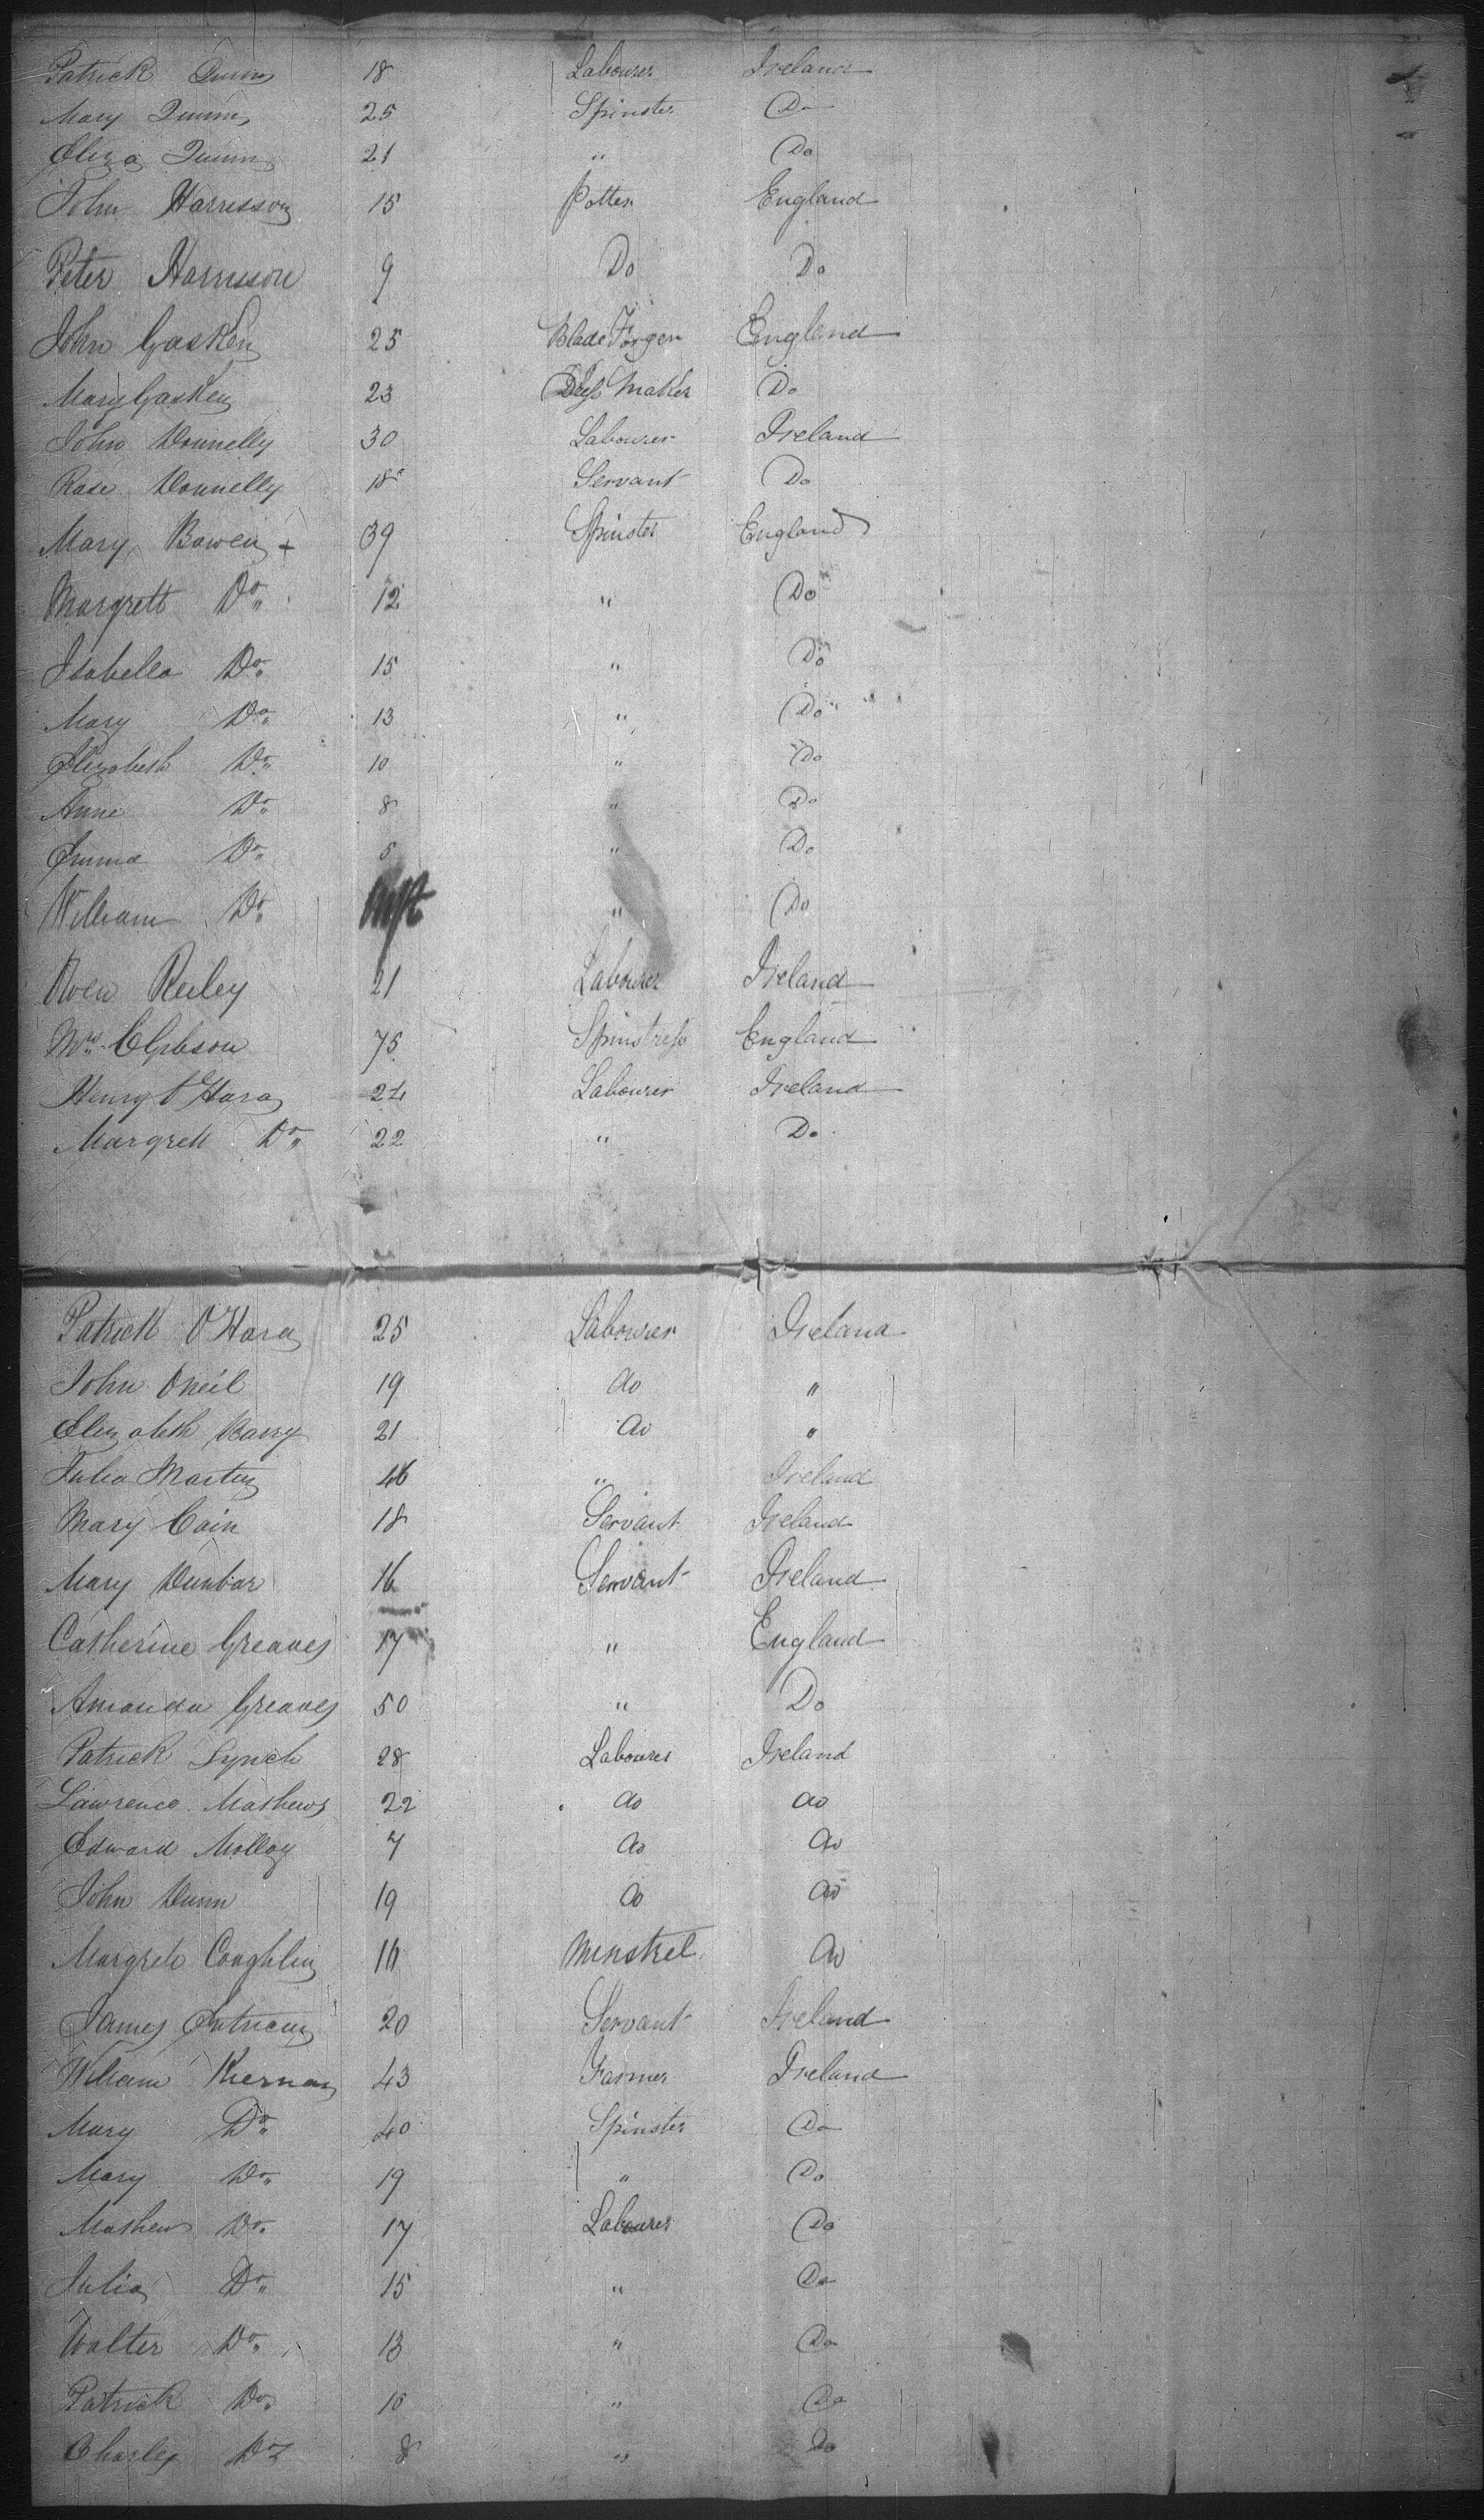 Patrick Quinn 18 Labourer Ireland
Mary Quinn 25 Spinster Do
Eliza Quinn 21 " Do
John Harrisson 15 Potter England
Peter Harrisson 9 Do Do
John Gasken 25 Blade Forger England
Mary Gasken 23 Dress Maker Do
John Donnelly 30 Labourer Ireland
Rose Donnelly 18 Servant Do
Mary Bowen + 39 Spinster England
Margrett Do 12 " Do
Isabella Do 15 " Do
Mary Do 13 " Do
Elizabeth Do 10 " Do
Anne Do 8 " Do
Emma Do 5 " Do
William Do Inft " Do
Owen Reiley 21 Labourer Ireland
Mrs. Gibson 75 Spinstress England
Henry O'Hara 24 Labourer Ireland
Margrett Do 22 " Do
Patrick O'Hara 25 Labourer Ireland
John Oneil 19 do "
Elizabeth Barry 21 do "
Julia Martin 46 " Ireland
Mary Cain 18 Servant Ireland
Mary Dunbar 16 Servant Ireland
Catherine Greaves 17 " England
Amanda Greaves 50 " Do
Patrick Lynch 28 Labourer Ireland
Lawrence Mathews 22 do do
Edward Molloy 7 do do
John Dunn 19 do do
Margrett Coughlin 16 Minstrel do
James 20 Servant Ireland
William Kiernan 43 Farmer Ireland
Mary Do 40 Spinster Do
Mary Do 19 " Do
Mathew Do 17 Labourer Do
Julia Do 15 " Do
Walter Do 13 " Do
Patrick Do 10 " Do
Charles Do 8 " Do